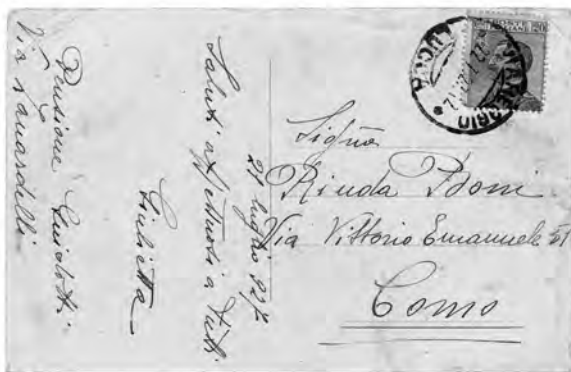 VIAREGGIO
LUCCA
Sigña
Rinda
Via Vittorio Emanuele 51
Como
21 luglio 927
Saluti affettuosi a tutti
Giulietta
Pensione Guidotti
Via Zanardelli